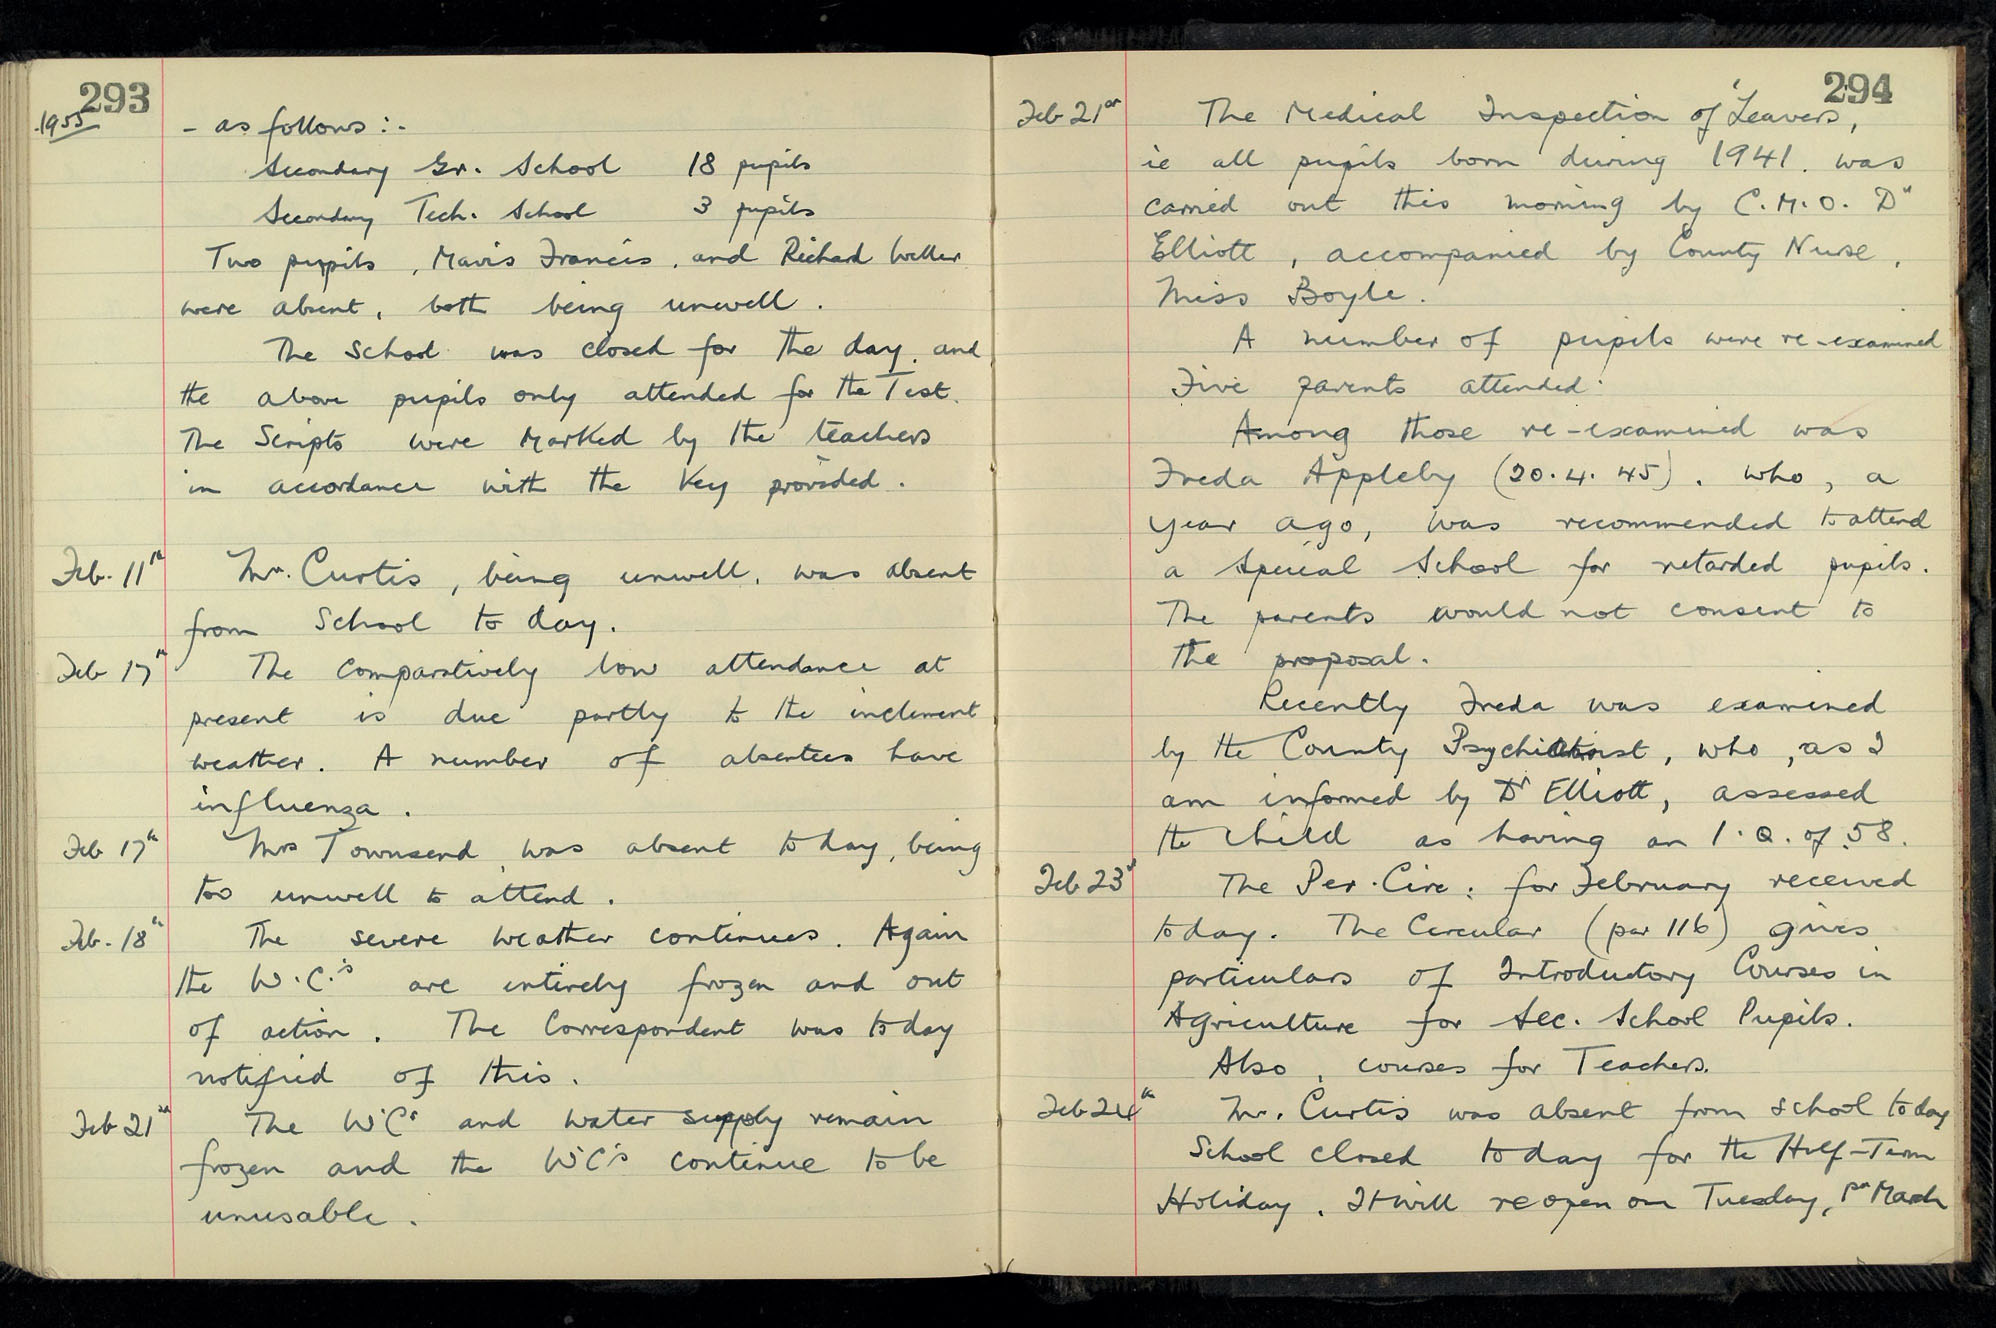 293
1955
- as follows :-
Secondary Gr. School 18 pupils
Secondary Tech. School 3 pupils
Two pupils, Mavis Francis, and Richard Weller
were absent, both being unwell.
The School was closed for the day, and
the above pupils only attended for the Test.
The Scripts were marked by the teachers
in accordance with the Key provided.
Feb. 11th Mr. Curtis, being unwell, was absent
from School to day.
Feb 17th The comparatively low attendance at
present is due partly to the inclement
weather. A number of absentees have
influenza.
Feb 17th Mrs Townsend was absent to day, being
too unwell to attend.
Feb. 18th The severe weather continues. Again
the W.C.'s are entirely frozen and out
of action. The Correspondent was to day
notified of this.
Feb 21st The WC's and water supply remain
frozen and the WC's continue to be
unusable.
294
Feb 21st The Medical Inspection of 'Leavers,
ie all pupils born during 1941. was
carried out this morning by C.M.O. Dr
Elliott, accompanied by County Nurse,
Miss Boyle.
A number of pupils were re-examined
Five parents attended.
Among those re-examined was
Freda Appleby (20.4.45). who, a
year ago, was recommended to attend
a Special School for retarded pupils.
The parents would not consent to
the proposal.
Recently Freda was examined
by the County Psychiatrist, who, as I
am informed by Dr Elliott, assessed
the child as having an I.Q. of 58.
Feb 23rd The Per. Circ. for February received
today. The Circular (par 116) gives
particulars of Introductory Courses in
Agriculture for Sec. School Pupils.
Also, courses for Teachers.
Feb 24th Mr. Curtis was absent from school to day
School closed to day for the Half-Term
Holiday. It will re open on Tuesday, 1st March